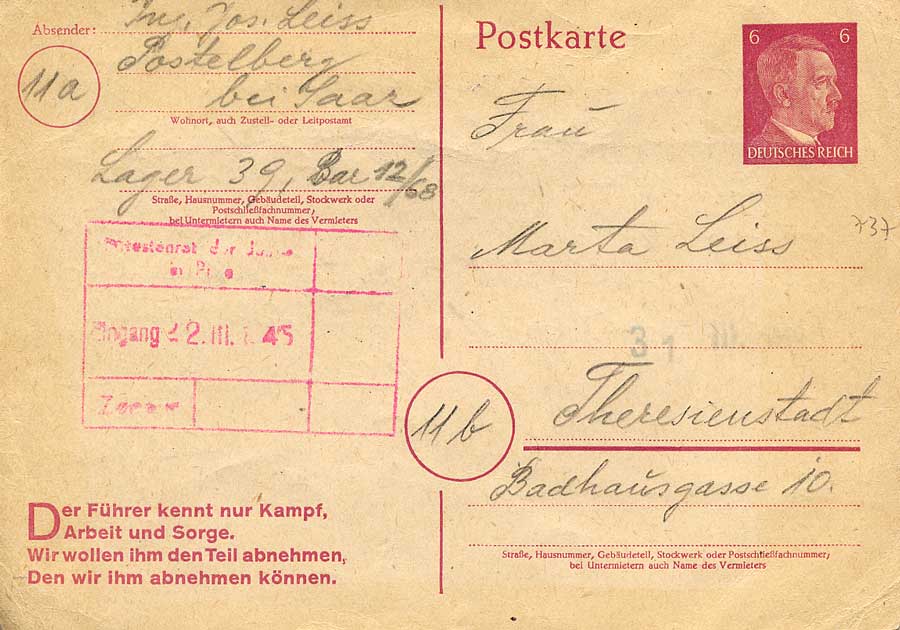 Absender:
Ing. Jos. Leiss
Postelberg
11a
bei Saar
Wohnort, auch Zustell- oder Leitpostamt
Lager 39, Bar 12/68
Straße, Hausnummer, Gebäudeteil, Stockwerk oder
Postschließfachnummer;
bei Untermietern auch Name des Vermieters
der
in
Eingang 22. III. 1945
Der Führer kennt nur Kampf,
Arbeit und Sorge.
Wir wollen ihm den Teil abnehmen,
Den wir ihm abnehmen können.
Postkarte
6 6
DEUTSCHES REICH
Frau
737
Marta Leiss
31 III.
Theresienstadt
11b
Badhausgasse 10.
Straße, Hausnummer, Gebäudeteil, Stockwerk oder Postschließfachnummer;
bei Untermietern auch Name des Vermieters